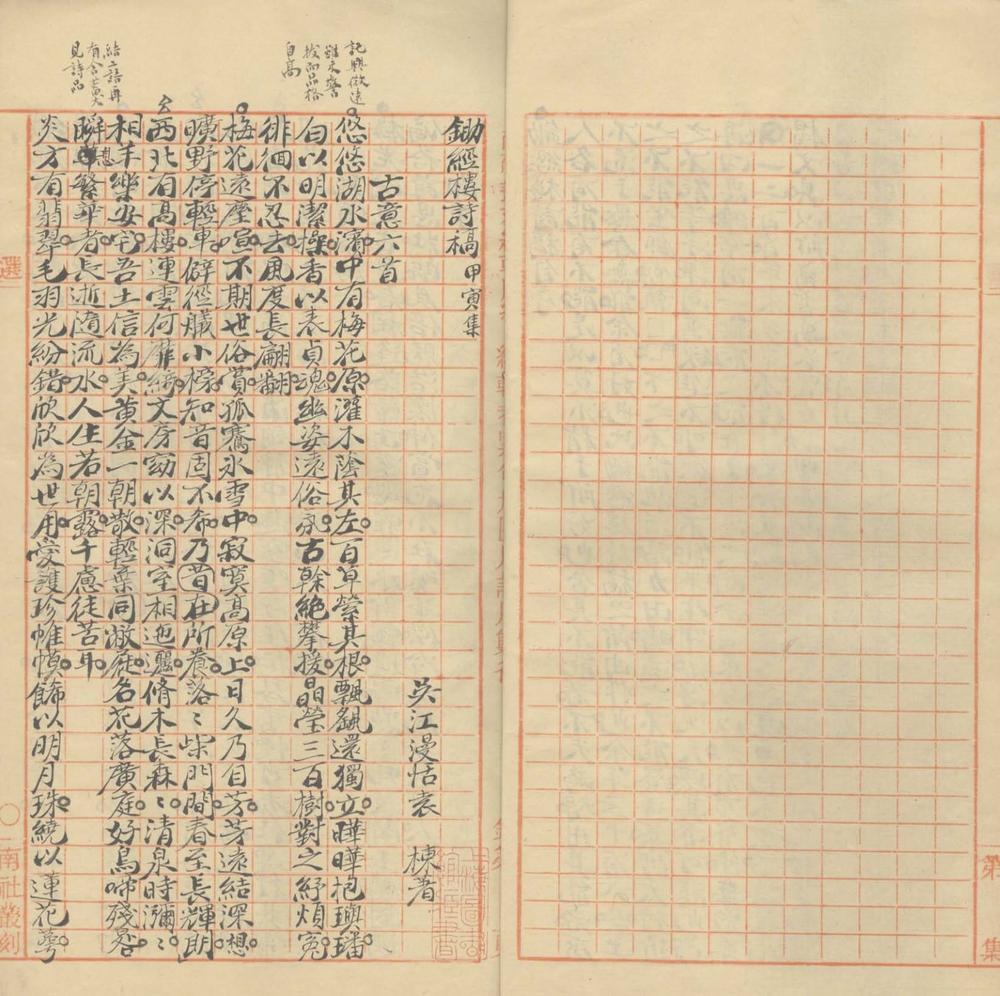 鋤經樓詩稿 甲寅集
吳江漫恬袁 棟著
古意六首
悠悠湖水濱中有梅花原灌木陰其左百草縈其根飄飄還獨立曄曄抱璵璠
白以明潔操香以表貞魂幽姿遠俗氛古幹絶攀援晶瑩三百樹對之紓煩寃
徘徊不忍去風度長翩翻
梅花遠塵喧不期世俗賞孤騫冰雪中寂寞高原上日久乃自芳芳遠結深想
曠野停輕車僻徑艤小榜知音固不希乃昔在所養落〻柴門間春至長輝朗
西北有高樓連雲何靡綺文房窈以深洞室相迤邐脩木長森〻清泉時瀰〻
相手樂安宅吾土信為美黃金一朝散輕葉同敝屣名花落廣庭好鳥啼殘晷
瞬息繁華者長逝隨流水人生若朝露千慮徒苦耳
炎方有翡翠毛羽光紛錯欣欣為世用愛護珍帷幙飾以明月珠繞以蓮花萼
託興微遠
雖未警
拔而品格
自高
結二語再
有含蓄尤
見詩品
選
南社叢刻
第
集